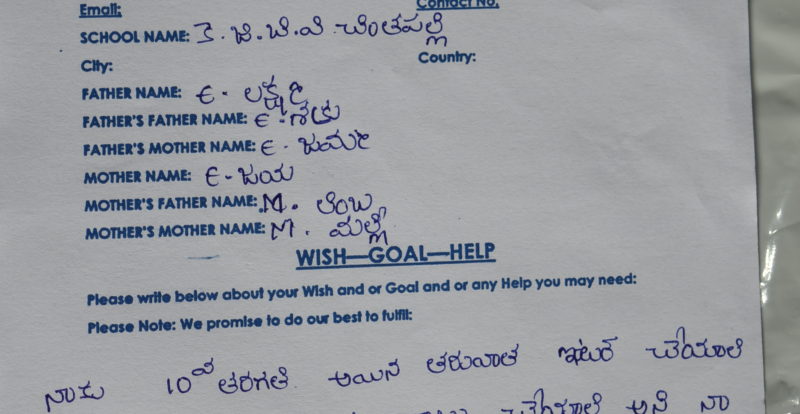 Email: Contact No.
SCHOOL NAME: కె. జి. బి. వి చింతపల్లి
City: Country:
FATHER NAME: E. లక్ష్మి
FATHER'S FATHER NAME: E.
FATHER'S MOTHER NAME: E.
MOTHER NAME: E. జయ
MOTHER'S FATHER NAME: M. లింబు
MOTHER'S MOTHER NAME: M. మల్లి
WISH—GOAL—HELP
Please write below about your Wish and or Goal and or any Help you may need:
Please Note: We promise to do our best to fulfil:
నాకు 10వ తరగతి అయిన తరువాత ఇంటర్ చేయాలి
చేయాలి అని నా